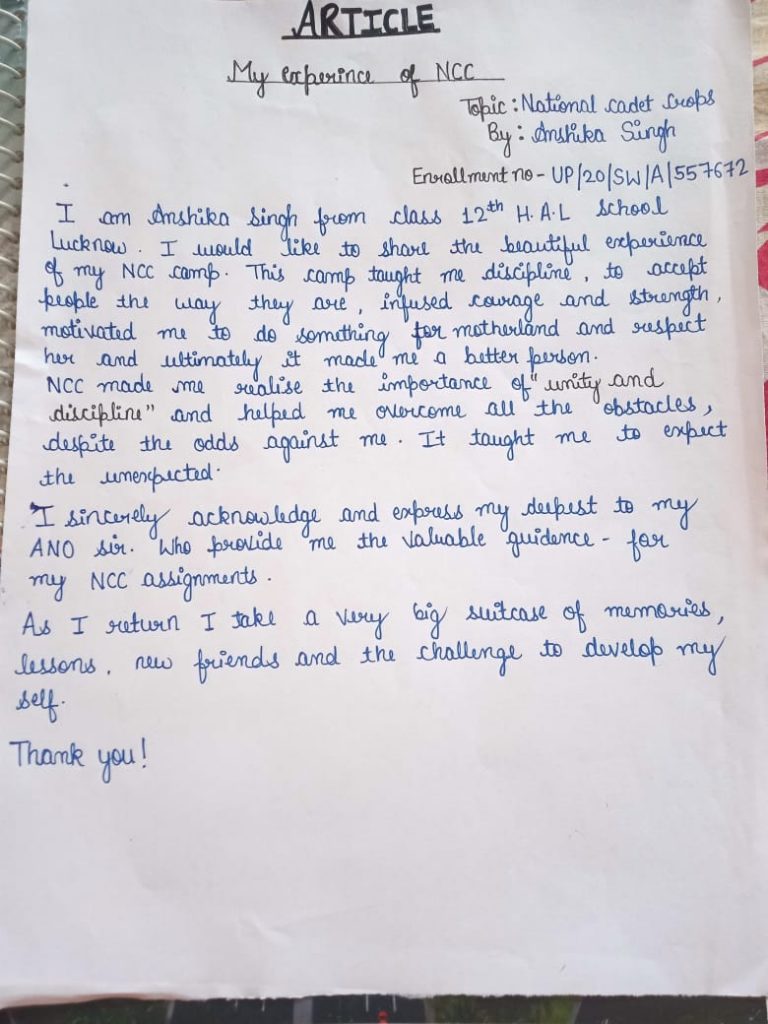 ARTICLE
My experince of NCC
Topic : National cadet Crops
By : Anshika Singh
Enrollment no - UP/20/SW/A/557672
I am Anshika Singh from class 12th H.A.L School
Lucknow. I would like to share the beautiful experience
of my NCC camp. This camp taught me discipline, to accept
people the way they are, infused courage and strength,
motivated me to do something for motherland and respect
her and ultimately it made me a better person.
NCC made me realise the importance of "unity and
discipline" and helped me overcome all the obstacles,
despite the odds against me. It taught me to expect
the unexpected.
I sincerely acknowledge and express my deepest to my
ANO sir. Who provide me the valuable guidence - for
my NCC assignments.
As I return I take a very big suitcase of memories,
lessons, new friends and the challenge to develop my
self.
Thank you!